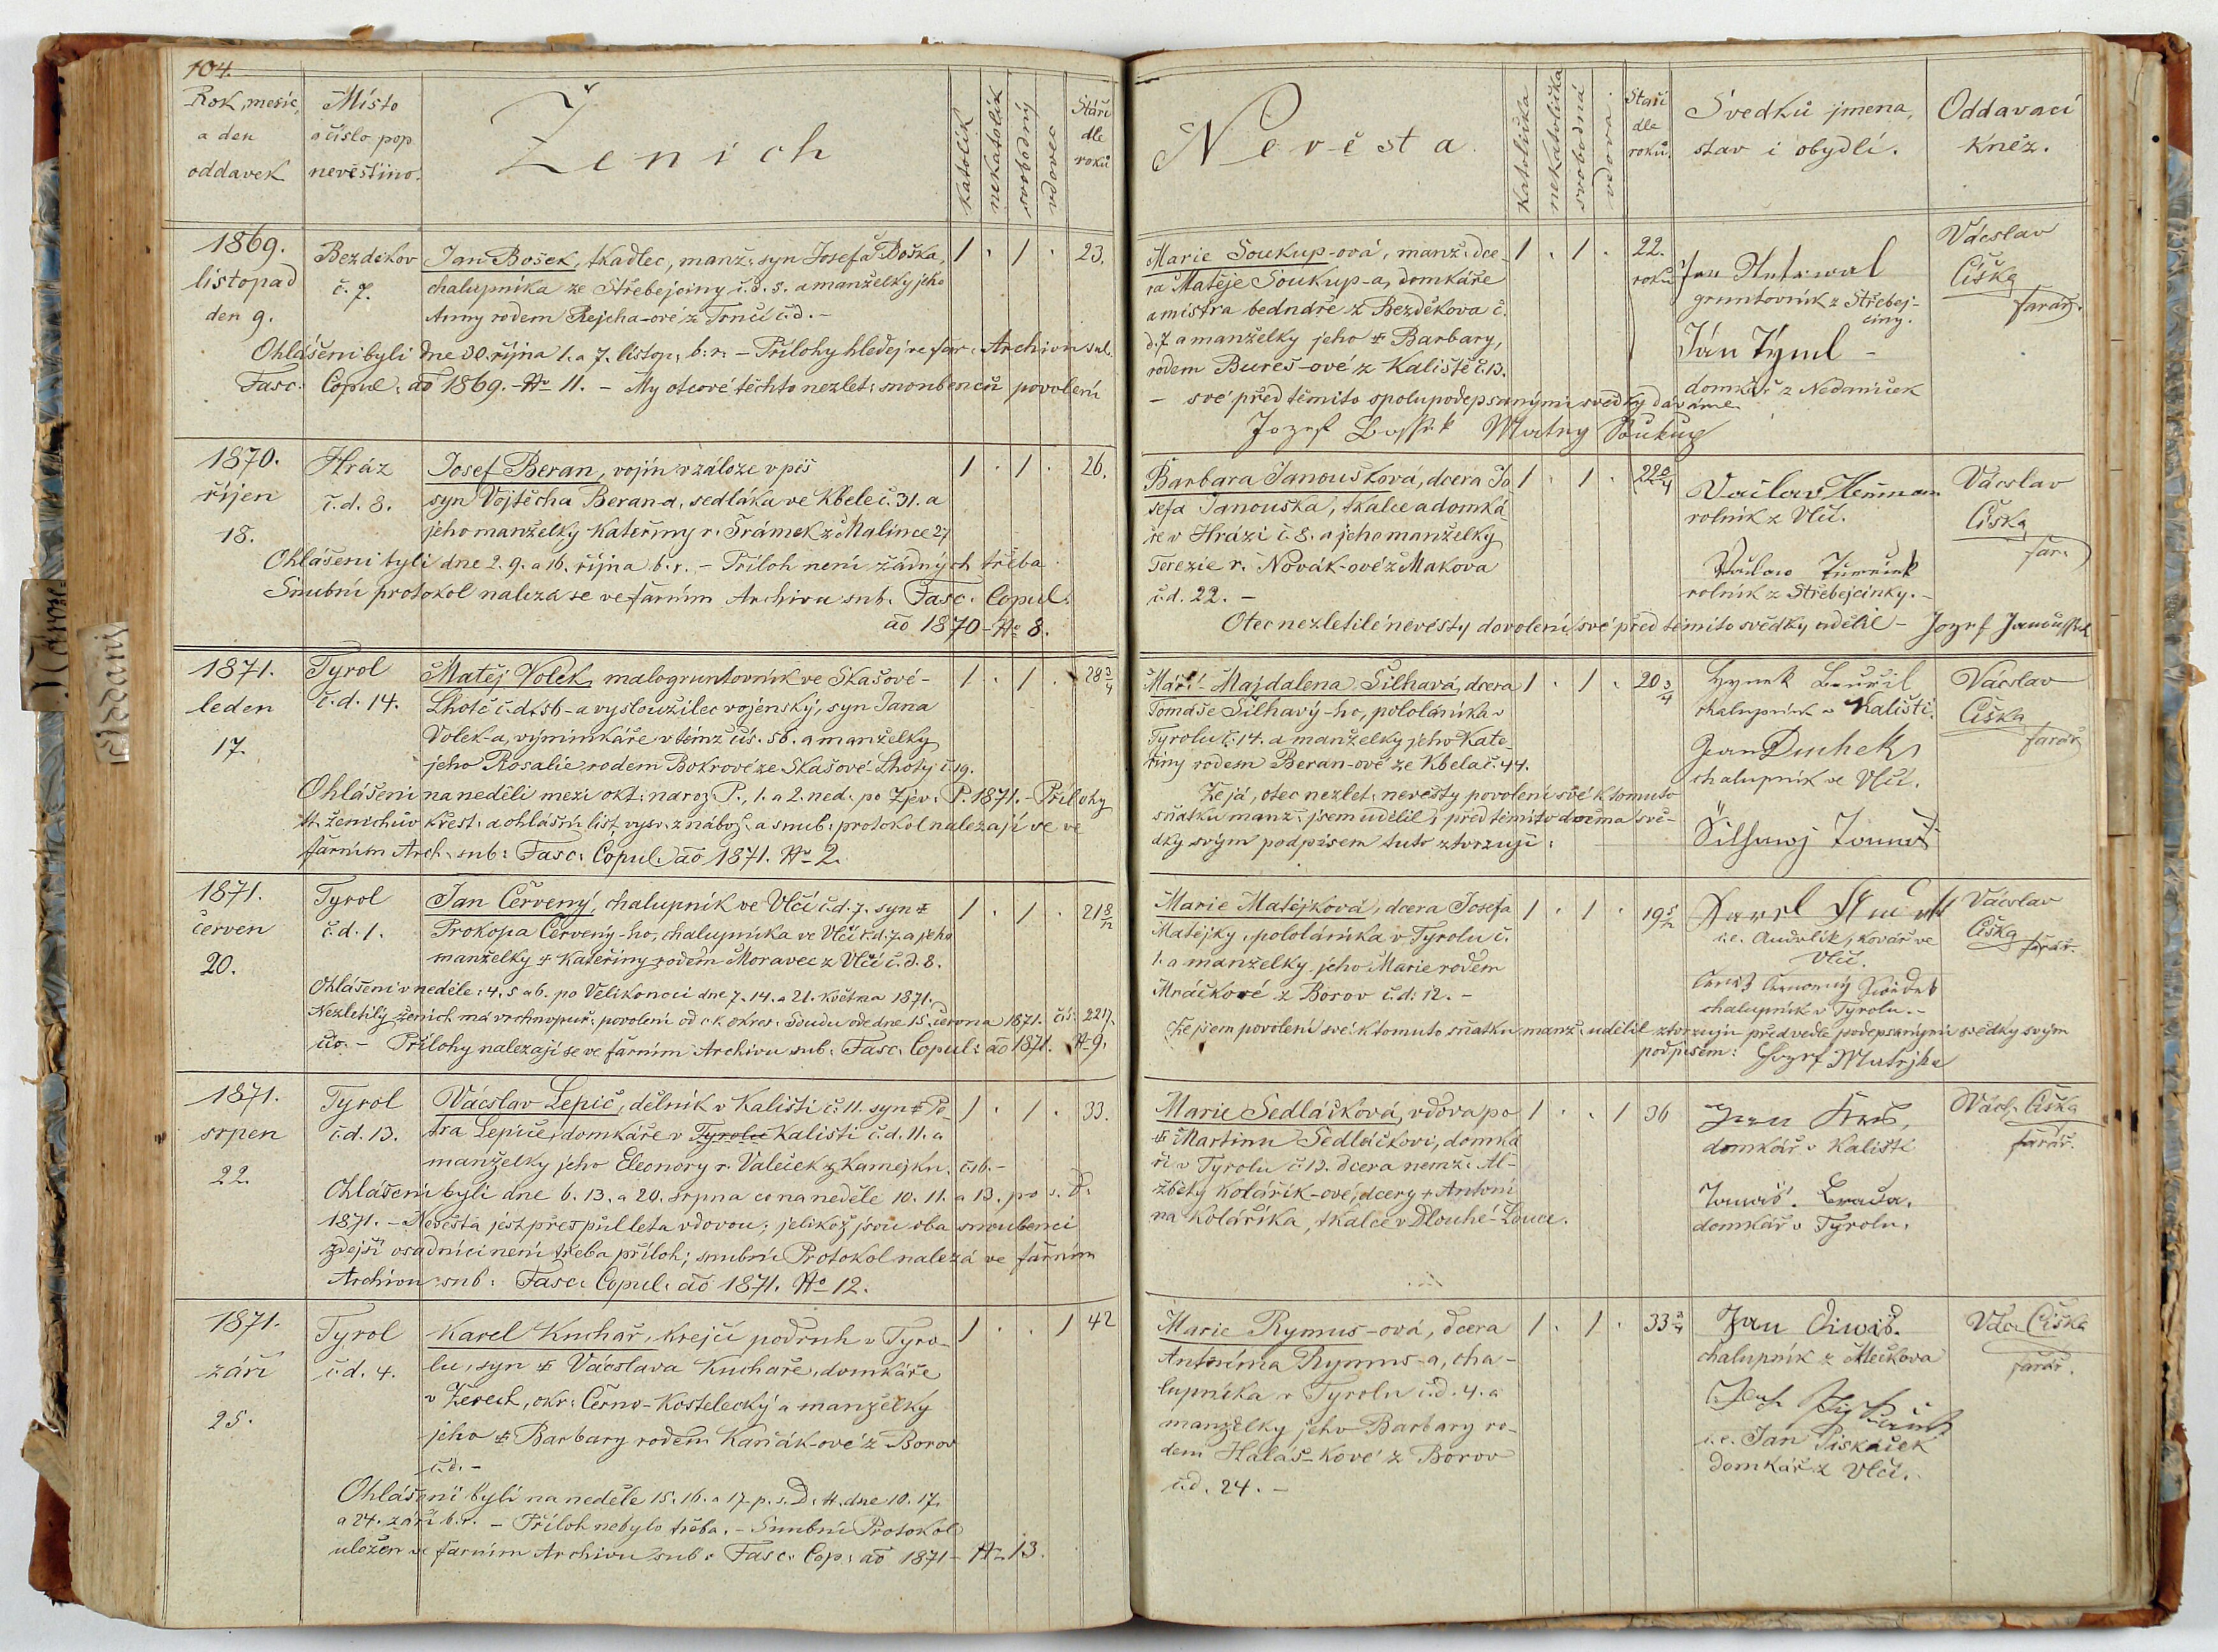 104.
Rok, měsíc,
a den
oddavek
Místo
a číslo pop.
nevěstino.
Ženich
katolík
nekatolík
svobodný
vdovec
Stáří
dle
roků
1869.
listopad
den 9.
Bezděkov
č. 7.
Jan Bošek, tkadlec, manž. syn Josefa Boška,
chalupníka ze Střebejciny č.d. 5. a manželky jeho
Anny rodem Rejcha-ové z Trnčí č.d. –
1 . 1 . 23.
Ohlášeni byli dne 30. října 1. a 7. listop. b. r. – Přílohy hledej ve far. Archivu sub.
Fasc. Copul. aō 1869. No 11. – My otcové těchto nezlet. snoubenců povolení
1870.
říjen
18.
Hráz
č.d. 8.
Josef Beran, vojín v záloze v pěš
syn Vojtěcha Beran-a, sedláka ve Kbele č. 31. a
jeho manželky Kateřiny r. Šrámek z Malince 27
1 . 1 . 26.
Ohlášeni byli dne 2. 9. a 16. října b. r. – Příloh není žádných třeba.
Snubní protokol nalezá se ve farním Archivu sub. Fasc. Copul.
aō 1870 – No 8.
1871.
leden
17.
Tyrol
č.d. 14.
Matěj Volek, malogruntovník ve Skašově-
Lhotě č.d. 56 - a vysloužilec vojenský, syn Jana
Volek-a, výminkáře v témž čís. 56. a manželky
jeho Rosalie rodem Bokrové ze Skašové Lhoty č. 19.
1 . 1 . 28 3/4
Ohlášeni na neděli mezi okt. naroz. P., 1. a 2. ned. po Zjev. P. 1871. – Přílohy
tt. ženichův křest. a ohlašní list, vysv. z nábož. a snub. protokol nalezají se ve
farním Arch. sub: Fasc. Copul. aō 1871. No 2.
1871.
červen
20.
Tyrol
č.d. 1.
Jan Červený, chalupník ve Vlčí č.d. 7. syn †
Prokopa Červený-ho, chalupníka ve Vlčí č.d. 7. a jeho
manželky † Kateřiny rodem Moravec z Vlčí č.d. 8.
1 . 1 . 21 8/12
Ohlášeni v neděle: 4. 5 a 6. po Velikonoci dne 7. 14. a 21. května 1871.
Nezletilý ženich má vrchnopor. povolení od c. k. okres. Soudu ode dne 15. června 1871. čís. 2217.
civ. – Přílohy nalezají se ve farním Archivu sub: Fasc. Copul: aō 1871. No 9.
1871.
srpen
22.
Tyrol
č.d. 13.
Vácslav Lepič, dělník v Kalisti č. 11. syn † Pe-
tra Lepiče, domkáře v Tyrolu Kalisti č.d. 11. a
manželky jeho Eleonory r. Valeček z Kamejku. č. 16. –
1 . 1 . 33.
Ohlášeni byli dne 6. 13. a 20. srpna co na neděle 10. 11. a 12. po s. D.
1871. – Nevěsta jest přes půl leta vdovou; jelikož jsou oba snoubenci
zdejší osadníci není třeba příloh; snubní Protokol nalezá ve farním
Archivu sub: Fasc. Copul. aō 1871. No 12.
1871.
září
25.
Tyrol
č.d. 4.
Karel Kuchař, krejčí podruh v Tyro-
lu, syn † Vácslava Kuchaře, domkáře
v Žerech, okr. Černo-Kostelecký a manželky
jeho † Barbary rodem Kaňák-ové z Borov
č.d. –
1 . . 1 42
Ohlášení byli na neděle 15. 16. a 17. p. s. D. tt. dne 10. 17.
a 24. září b. r. – Příloh nebylo třeba. – Snubní Protokol
uložen ve farním Archivu sub: Fasc. Cop: aō 1871 – No 13.
Nevěsta
katolička
nekatolička
svobodná
vdova
Staří
dle
roků.
Svedků jmena,
stav i obydlí.
Oddavací
kněz.
Marie Soukup-ová, manž. dce-
ra Matěje Soukup-a, domkáře
a mistra bednáře z Bezděkova č.
d. 7 a manželky jeho † Barbary,
rodem Bureš-ové z Kaliště č. 13.
1 . 1 . 22.
roků
gruntovník z Střebej-
ciny.
Ján Týml –
domkář z Nedaniček
Vácslav
Čiška
farář.
– své před těmito spolupodepsanými svědky dáváme
Jozef Bossek Matey Soukup
Barbara Janoušková, dcera Jo-
sefa Janouška, tkalce a domká-
ře v Hrázi č. 8. a jeho manželky
Terezie r. Novák-ové z Makova
č.d. 22. –
1 . 1 .
rolník z Vlčí.
rolník z Střebejcinky. –
Vácslav
Čiška
far.
Otec nezletilé nevěsty dovolení své před těmito svědky udělil – Jozef Janoussek
Maří-Majdalena Šilhavá, dcera
Tomáše Šilhavý-ho, pololáníka v
Tyrolu č. 14. a manželky jeho Kate-
řiny rodem Beran-ové ze Kbela č. 44.
1 . 1 . 20 3/4
chalupník v Kališti.
Jean Duchek
chalupník ve Vlčí.
Vácslav
Čiška
farář
Že já, otec nezlet. nevěsty povolení své k tomuto
sňatku manž. jsem udělil i před těmito dvěma svě-
dky svým podpisem tuto ztvrzuji:
Šilhawý Tomáš
Marie Matějková, dcera Josefa
Matějky, pololáníka v Tyrolu č.
1. a manželky jeho Marie rodem
Mráčkové z Borov č.d. 12. –
1 . 1 . 19 5/12
i.e. Andrlík, kovář ve
Vlčí.
chalupník v Tyrolu. –
Vácslav
Čiška farář.
Že jsem povolení své k tomuto sňatku manž. udělil ztvrzuju před vedle podepsanými svědky svým
podpisem: Jozef Matejka
Marie Sedláčková, vdova po
† Martinu Sedláčkovi, domká-
ři v Tyrolu č. 13. dcera nemž. Al-
žběty Kolářík-ové, dcery † Antoní-
na Koláříka, tkalce v Dlouhé-Louce.
1 . . 1 36
domkář v Kalisti
domkář v Tyrolu.
Václ. Čiška
farář.
Marie Rymus-ová, dcera
Antonína Rymus-a, cha-
lupníka v Tyrolu č.d. 4. a
manželky jeho Barbary ro-
dem Haláš-kové z Borov
č.d. 24. –
1 . 1 . 33 3/4
Jan Diwiš.
chalupník z Mečkova
i.e. Jan Piskáček
domkář z Vlčí.
Čiška
farář.